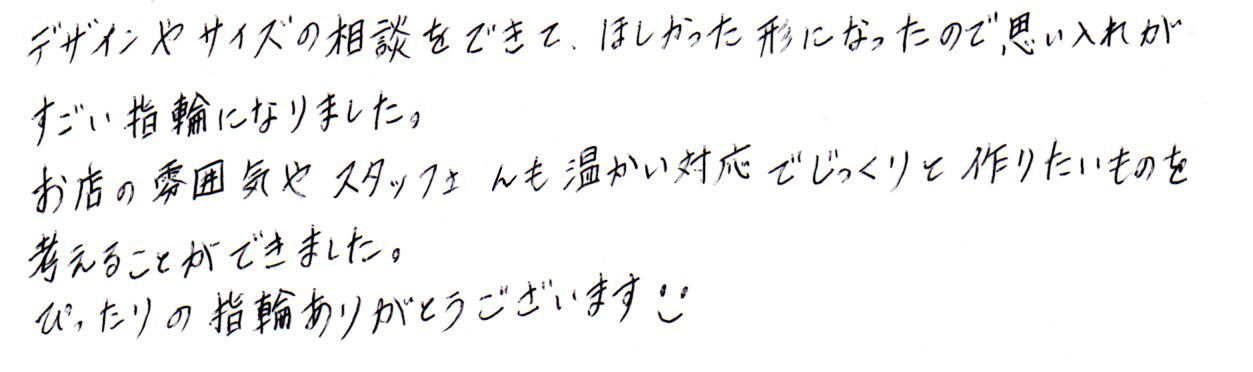 デザインやサイズの相談をできて、ほしかった形になったので思い入れが
すごい指輪になりました。
お店の雰囲気やスタッフさんも温かい対応でじっくりと作りたいものを
考えることができました。
ぴったりの指輪ありがとうございます